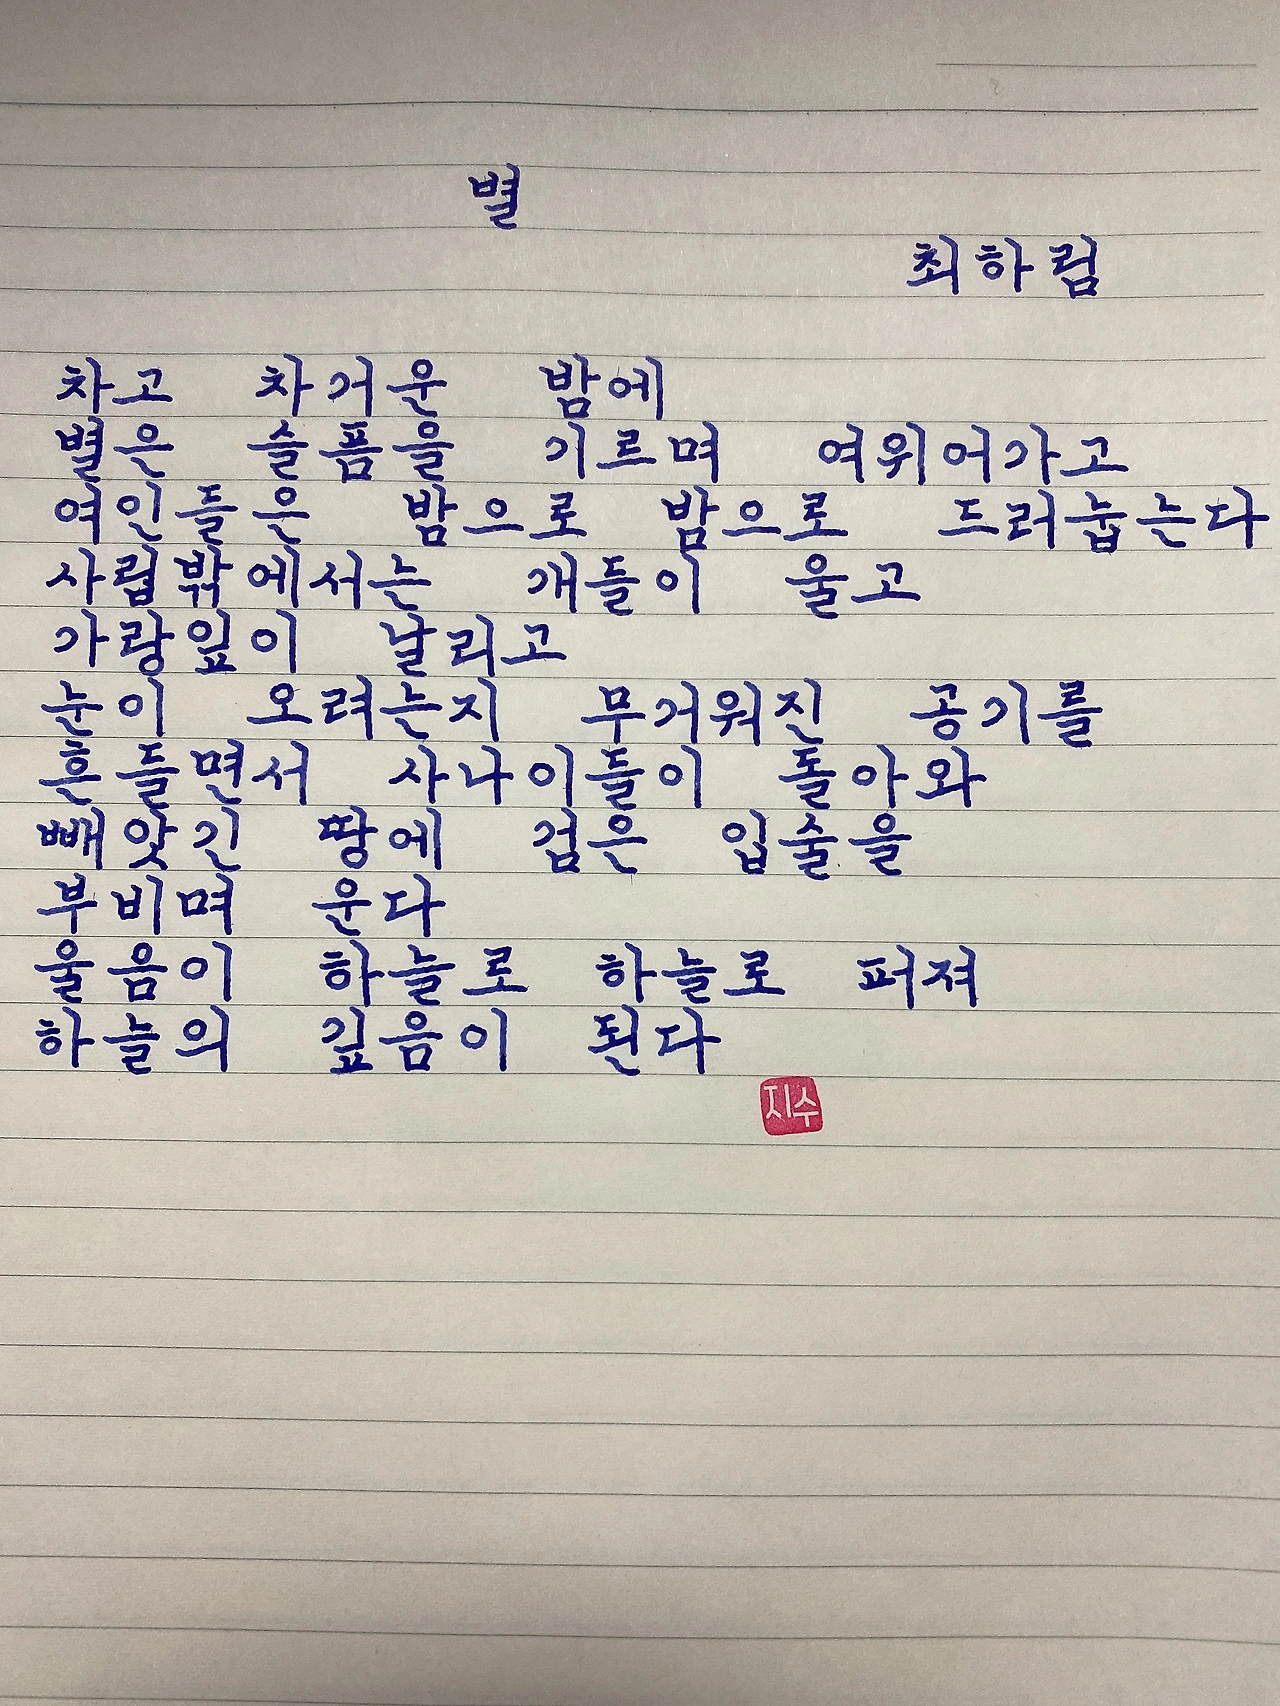 별
최하림
차고 차거운 밤에
별은 슬픔을 기르며 여위어가고
여인들은 밤으로 밤으로 드러눕는다
사립밖에서는 개들이 울고
가랑잎이 날리고
눈이 오려는지 무거워진 공기를
흔들면서 사나이들이 돌아와
빼앗긴 땅에 검은 입술을
부비며 운다
울음이 하늘로 하늘로 퍼져
하늘의 깊음이 된다
지수